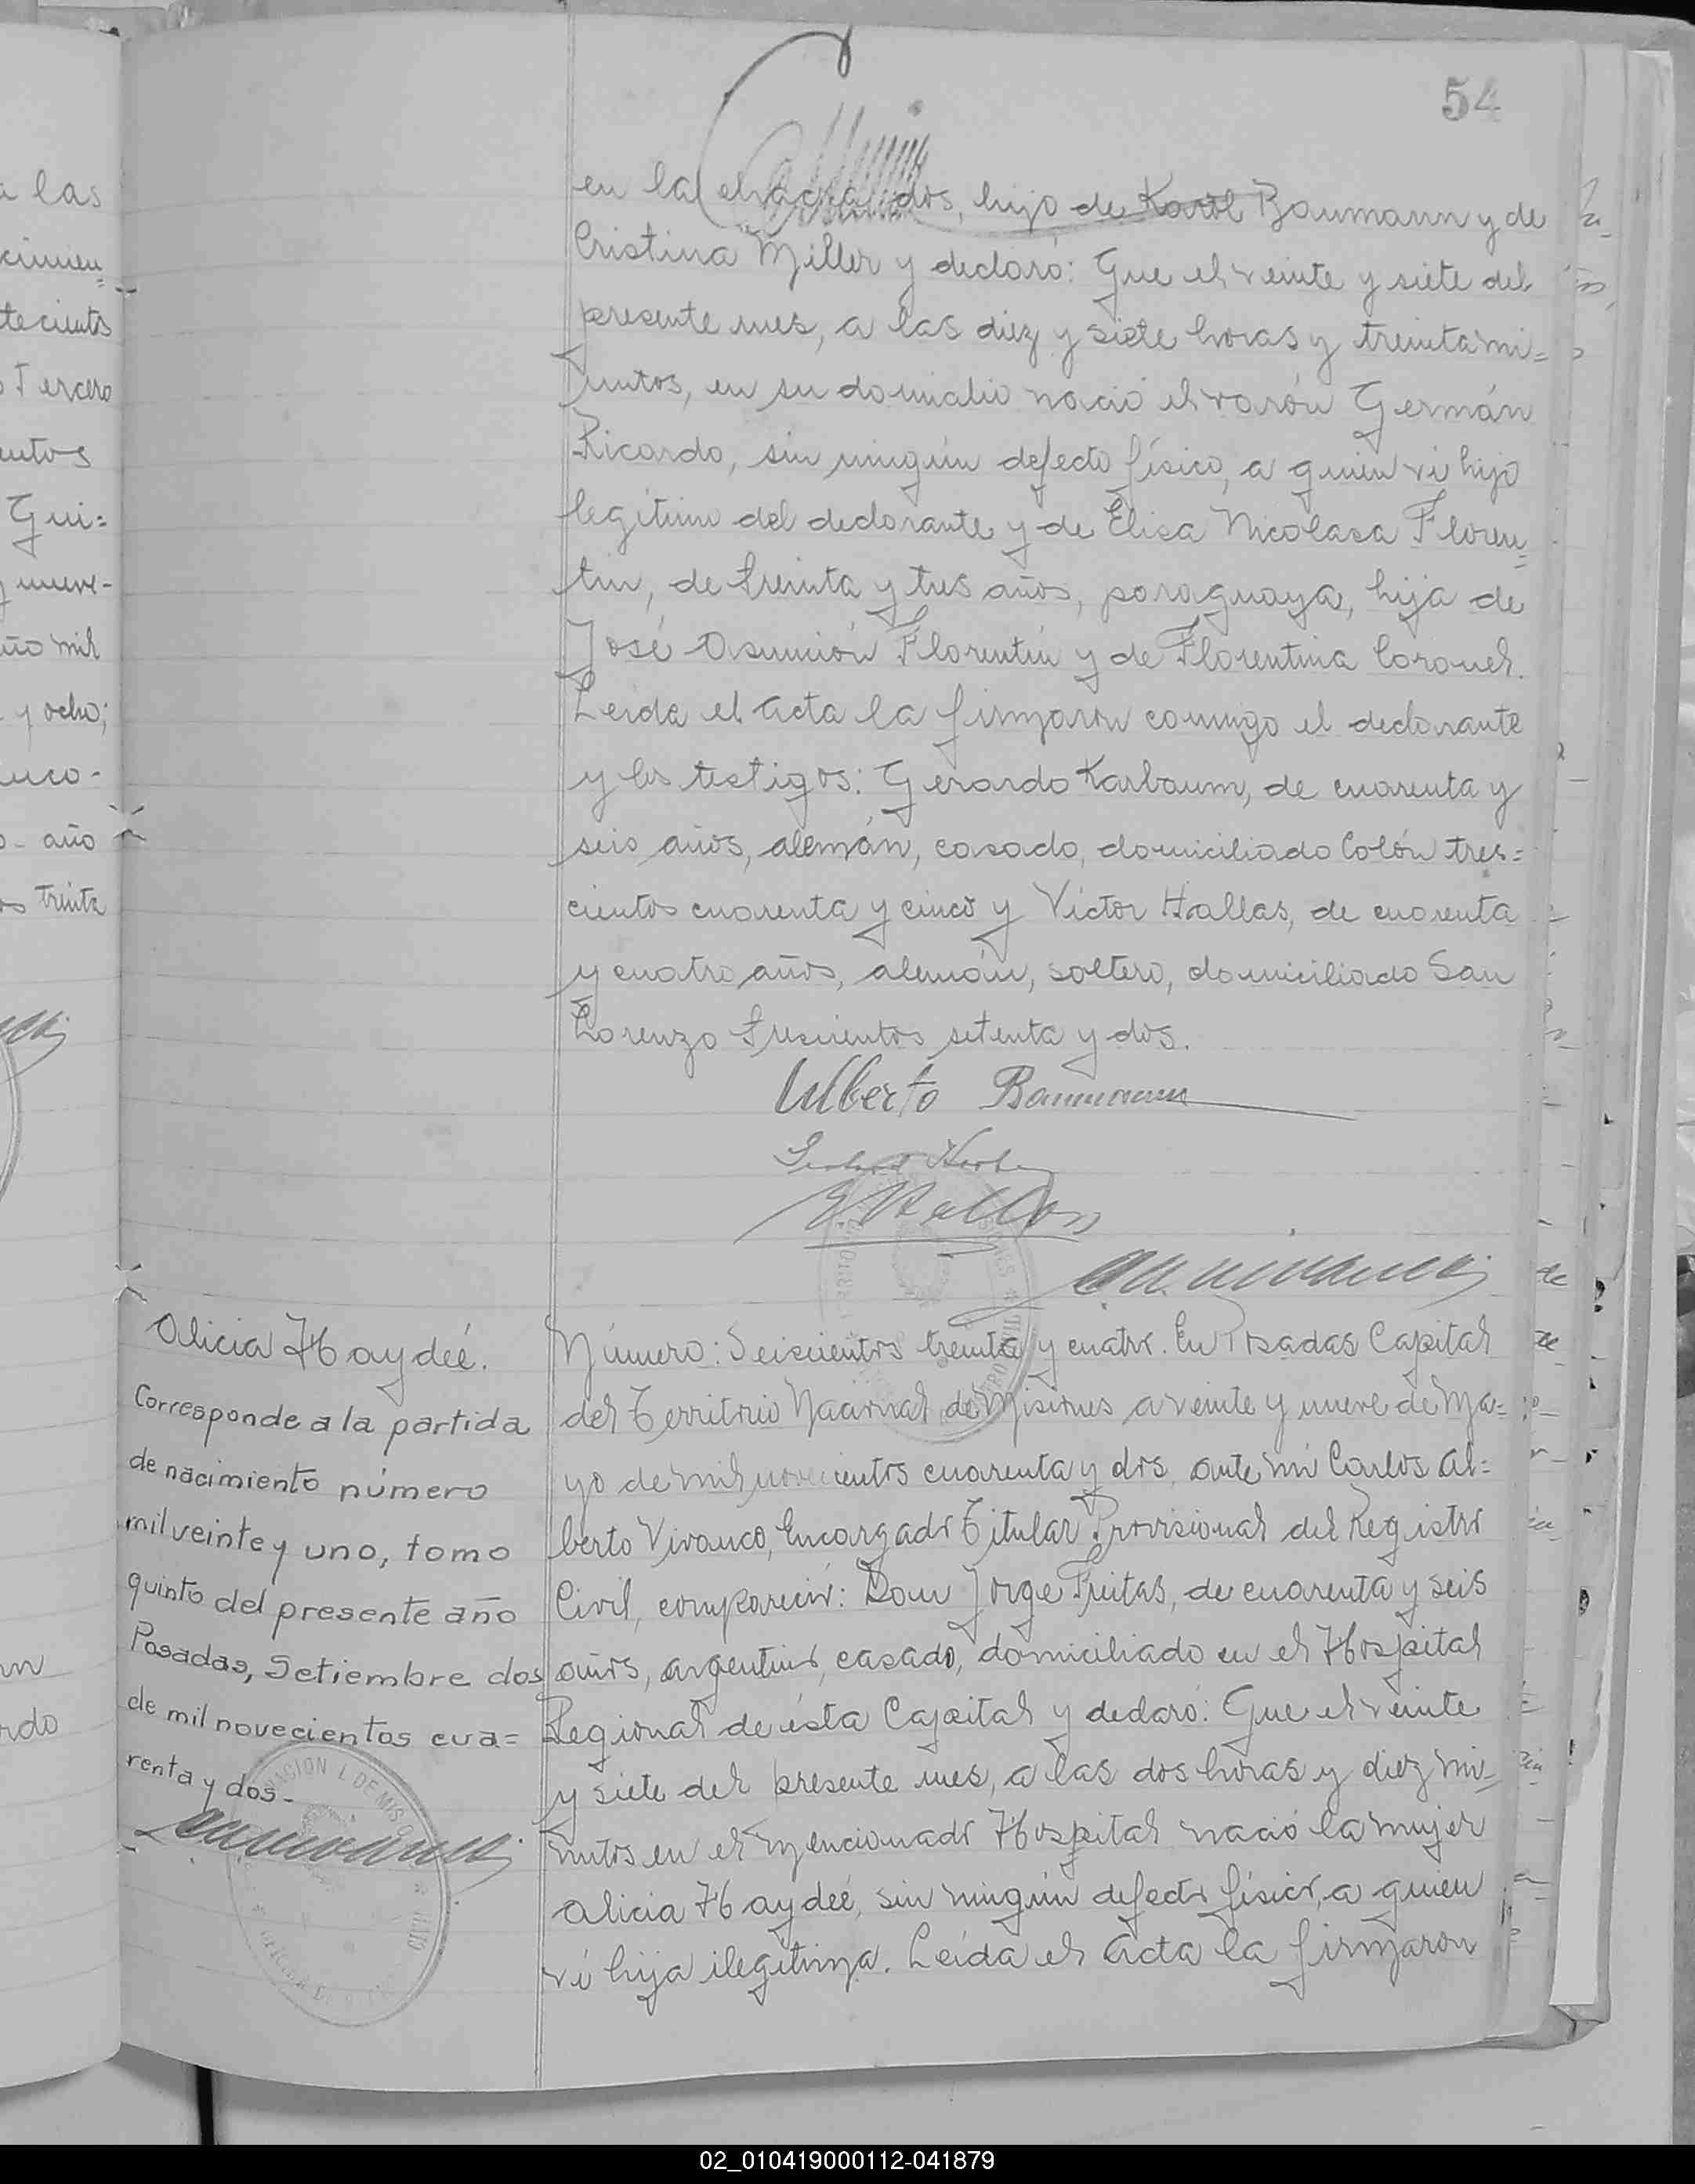 54
en la chacra dos, hijo de Karol Baumann y de
Cristina Miller y declaró: Que el veinte y siete del
presente mes, a las diez y siete horas y treinta mi=
nutos, en su domicilio nació el varón Germán
Ricardo, sin ningún defecto físico, a quien vi hijo
legítimo del declarante y de Elisa Nicolasa Floren=
tin, de treinta y tres años, paraguaya, hija de
José Asunción Florentin y de Florentina Coronel.
Leida el acta la firmaron conmigo el declarante
y los testigos: Gerardo Karbaum, de cuarenta y
seis años, alemán, casado, domiciliado Colón tres=
cientos cuarenta y cinco y Victor Hallas, de cuarenta
y cuatro años, alemán, soltero, domiciliado San
Lorenzo trescientos setenta y dos.
Alberto Baumann
Alicia Haydeé.
Corresponde a la partida
de nacimiento número
mil veinte y uno, tomo
quinto del presente año
Posadas, Setiembre dos
de mil novecientos cua=
renta y dos-
Número: Seiscientos treinta y cuatro. En Posadas Capital
del Territorio Nacional de Misiones a veinte y nueve de Ma=
yo de mil novecientos cuarenta y dos, ante mi Carlos Al=
berto Vivanco, Encargado Titular Provisional del Registro
Civil, compareció: Don Jorge Freitas, de cuarenta y seis
años, argentino, casado, domiciliado en el Hospital
Regional de ésta Capital y declaró: Que el veinte
y siete del presente mes, a las dos horas y diez mi-
nutos en el mencionado Hospital nació la mujer
Alicia Haydeé, sin ningún defecto físico, a quien
vi hija ilegítima. Leída el acta la firmaron
a las
tecientos
Tercero
Gui=
y nueve-
mil
y ocho;
año
treinta
02_010419000112-041879